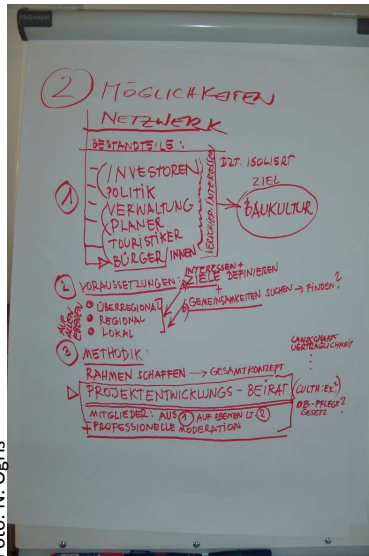 ② MÖGLICHKEITEN
NETZWERK
BESTANDTEILE:
① INVESTOREN
POLITIK
VERWALTUNG
PLANER
TOURISTIKER
BÜRGER/INNEN
VERSCHIED. INTERESSEN
DZT. ISOLIERT
ZIEL
BAUKULTUR
② VORAUSSETZUNGEN:
INTERESSEN +
ZIELE DEFINIEREN
+
GEMEINSAMKEITEN SUCHEN → FINDEN?
AUF ALLEN EBENEN
ÜBERREGIONAL
REGIONAL
LOKAL
③ METHODIK:
RAHMEN SCHAFFEN → GESAMTKONZEPT
LANDSCHAFTS
VERTRÄGLICHKEIT
PROJEKTENTWICKLUNGS-BEIRAT
OB-PFLEGE?
GESETZ
MITGLIEDER: AUS ① AUF EBENEN LT. ②
+ PROFESSIONELLE MODERATION
Foto: N. Ogris